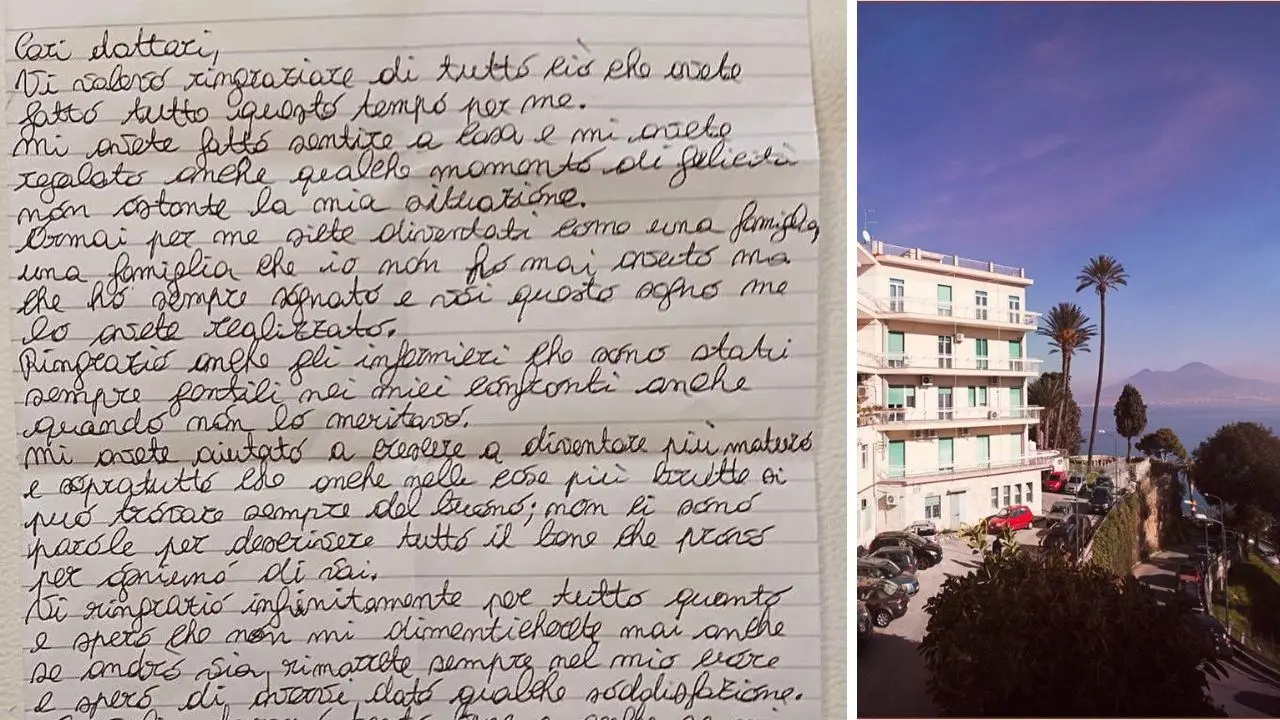 Cari dottori,
Vi volevo ringraziare di tutto ciò che avete
fatto tutto questo tempo per me.
Mi avete fatto sentire a casa e mi avete
regalato anche qualche momento di felicità
non ostante la mia situazione.
Ormai per me siete diventati come una famiglia,
una famiglia che io non ho mai avuto ma
che ho sempre sognato e voi questo sogno me
lo avete realizzato.
Ringrazio anche gli infermieri che sono stati
sempre gentili nei miei confronti anche
quando non lo meritavo.
Mi avete aiutato a crescere a diventare più maturo
e sopratutto che anche nelle cose più brutte si
può trovare sempre del buono; non ci sono
parole per descrivere tutto il bene che provo
per ogniuno di voi.
Vi ringrazio infinitamente per tutto quanto
e spero che non mi dimenticherete mai anche
se andrò via, rimarrete sempre nel mio cuore
e spero di avervi dato qualche soddisfazione.